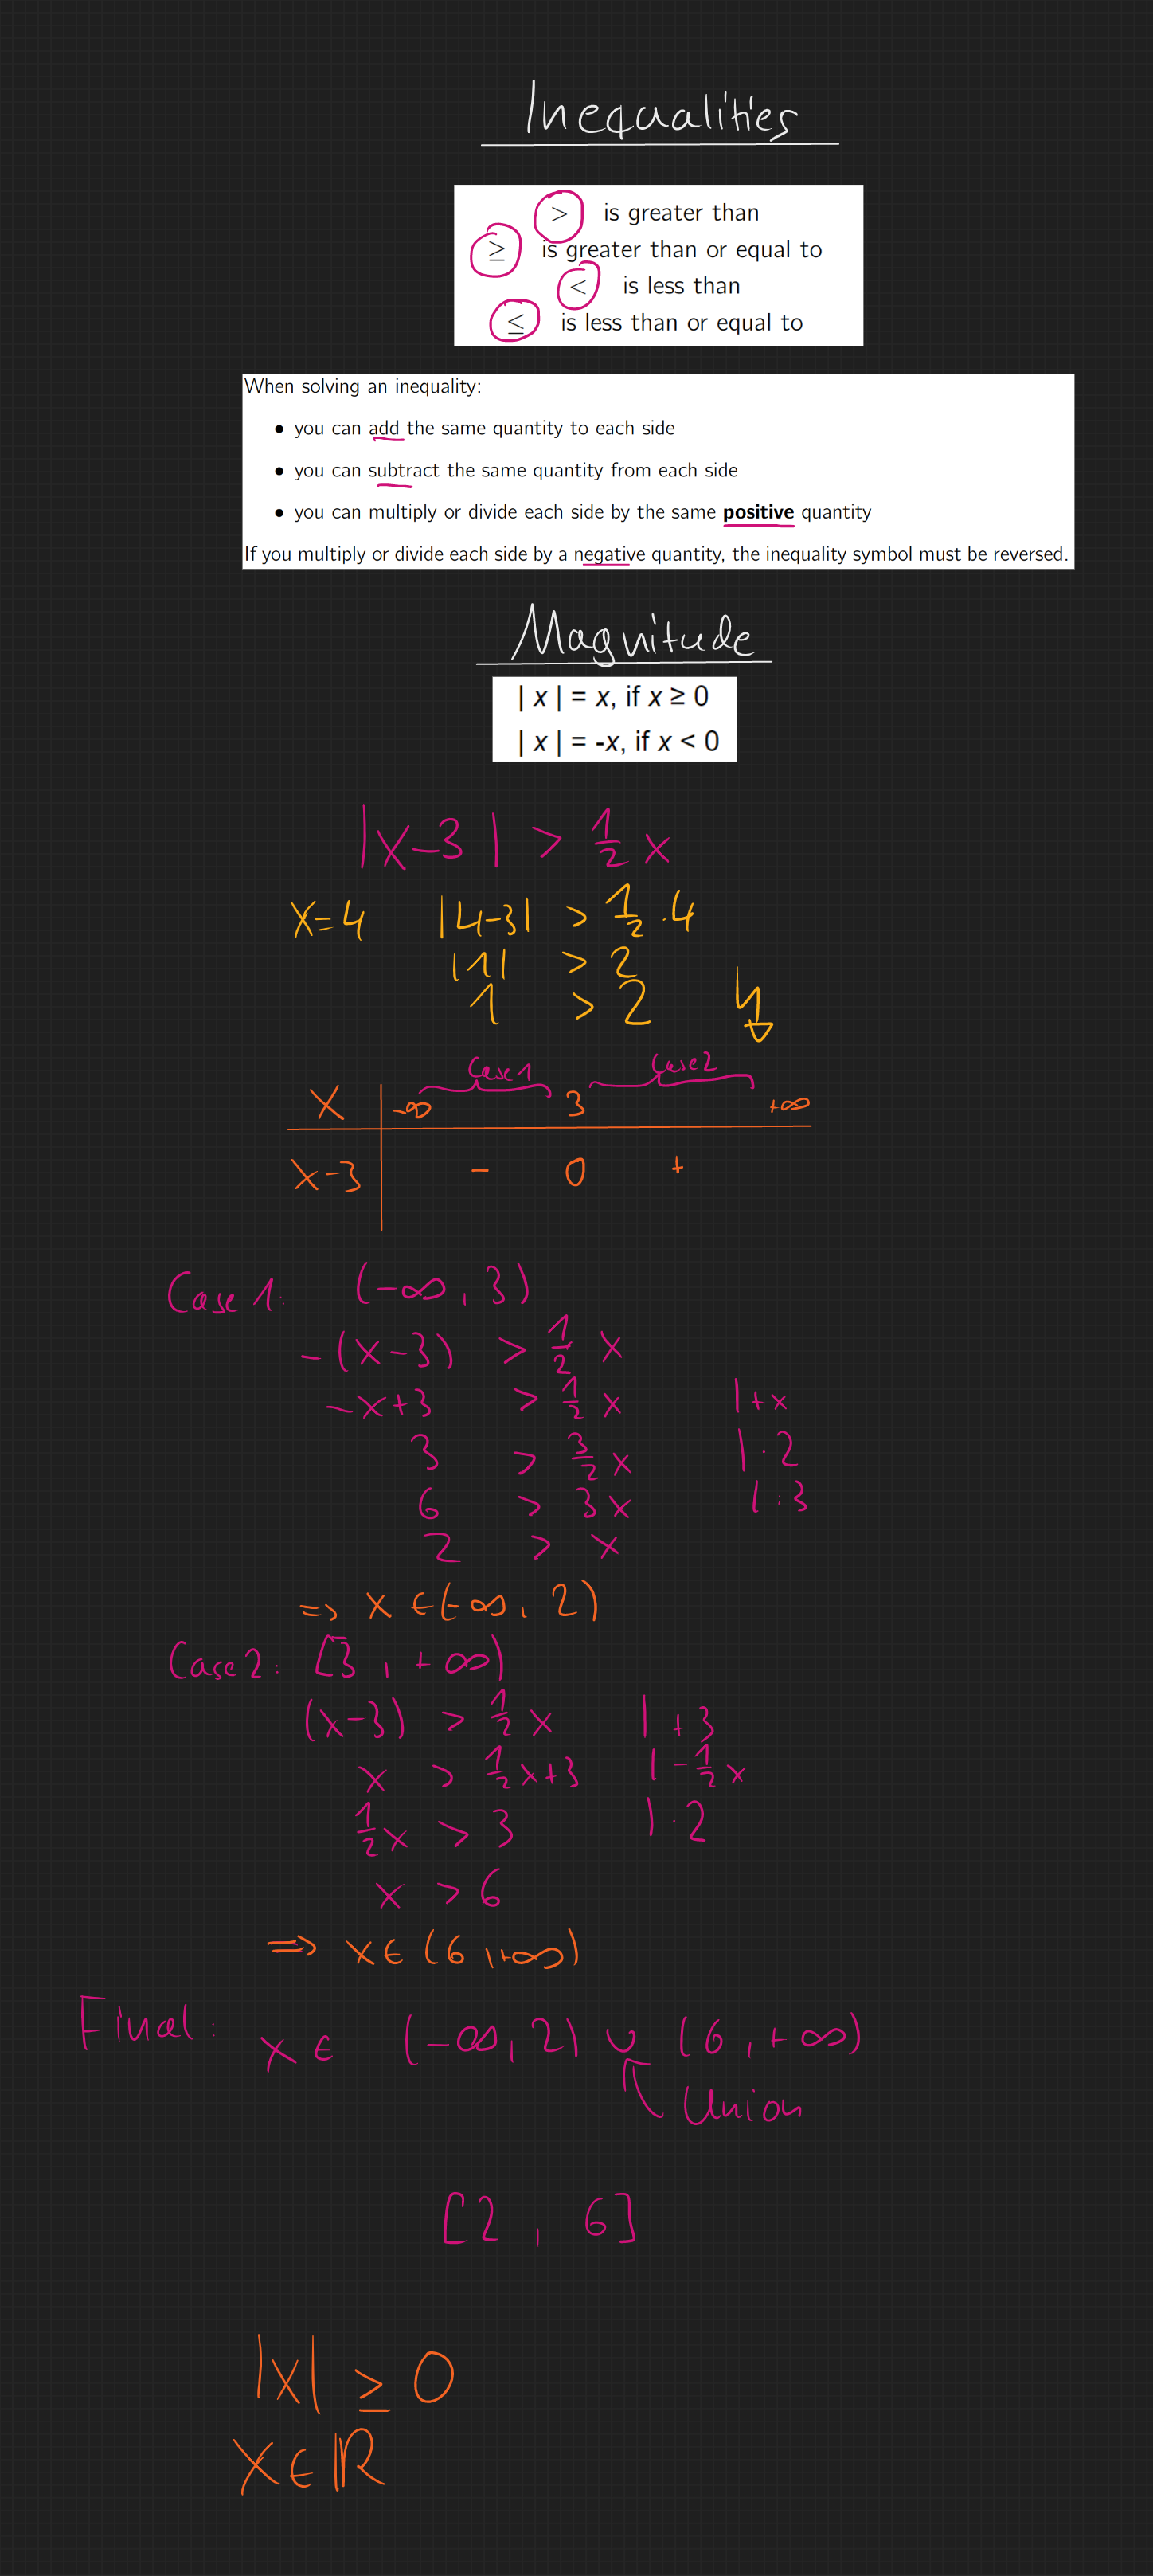 Inequalities
> is greater than
≥ is greater than or equal to
< is less than
≤ is less than or equal to
When solving an inequality:
• you can add the same quantity to each side
• you can subtract the same quantity from each side
• you can multiply or divide each side by the same positive quantity
If you multiply or divide each side by a negative quantity, the inequality symbol must be reversed.
Magnitude
| x | = x, if x ≥ 0
| x | = -x, if x < 0
|x-3| > 1/2 x
x=4 |4-3| > 1/2 · 4
|1| > 2
1 > 2 ↯
Case 1 Case 2
x | -∞ 3 +∞
x-3 | - 0 +
Case 1: (-∞, 3)
-(x-3) > 1/2 x
-x+3 > 1/2 x |+x
3 > 3/2 x |·2
6 > 3x |:3
2 > x
=> x ∈ (-∞, 2)
Case 2: [3, +∞)
(x-3) > 1/2 x |+3
x > 1/2 x+3 |-1/2 x
1/2 x > 3 |·2
x > 6
=> x ∈ (6, +∞)
Final: x ∈ (-∞, 2) ∪ (6, +∞)
Union
[2, 6]
|x| ≥ 0
x ∈ ℝ